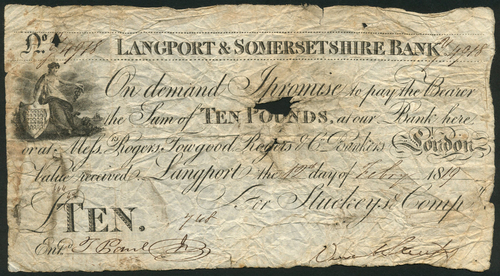 No. LANGPORT & SOMERSETSHIRE BANK
On demand I promise to pay the Bearer
the Sum of TEN POUNDS, at our Bank here
or at Messrs Rogers Towgood Rogers & Co Bankers London
Value received Langport the day of 1819
For Stuckeys & Compy
£TEN.
Entd